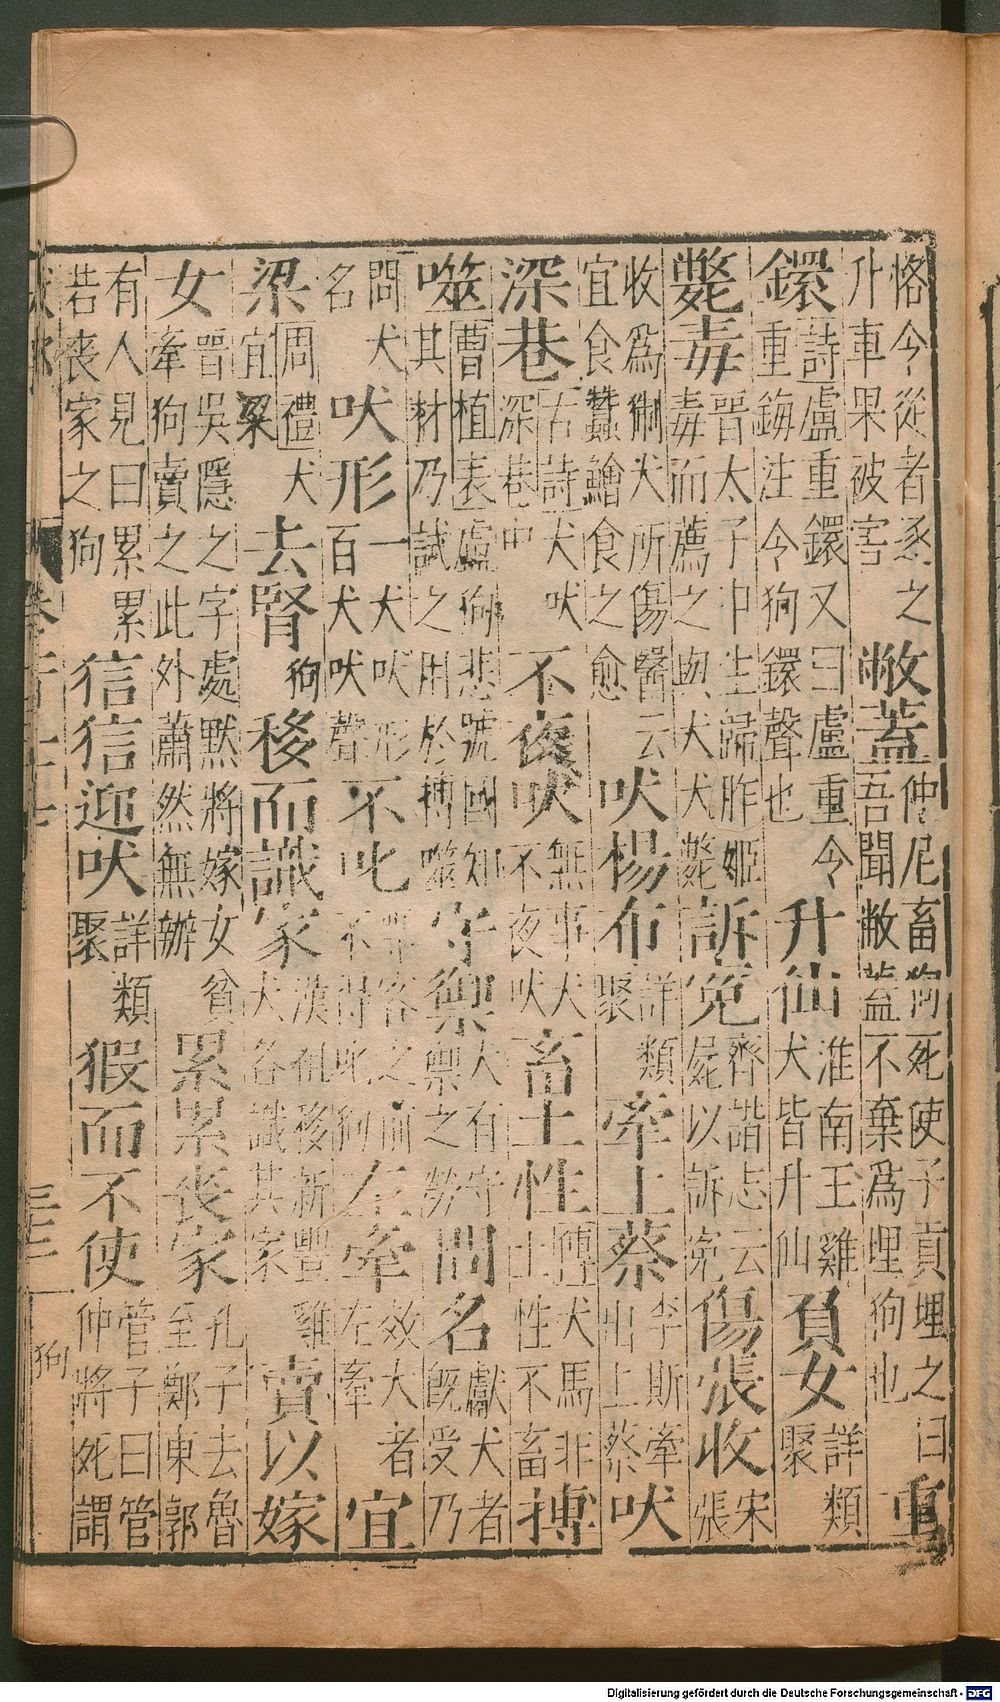 恪今從者逐之升車果被害敝蓋仲尼畜狗死使子貢埋之曰吾聞敝蓋不棄爲埋狗也重
鐶詩盧重鐶又曰盧重令重鋂注令狗鐶聲也升仙淮南王雞犬皆升仙負女詳類聚
斃毒晋太子申生歸胙姬毒而薦之與犬犬斃訴寃齊諧志云屍以訴寃傷張收宋張
收爲猘犬所傷醫云宜食蠶鱠食之愈吠楊布詳類聚牽上蔡李斯牽出上蔡吠
深巷古詩犬吠深巷中不夜吠無事犬不夜吠畜土性傳犬馬非土性不畜搏
噬曹植表盧狗悲號國知其材乃試之用於搏噬守禦犬有守禦之勞問名獻犬者既受乃
問犬名吠形一犬吠形百犬吠聲不叱尊客之前不得叱狗左牽效犬者左牽宜
梁周禮犬宜梁去腎狗移而識家漢祖移新豐雞犬各識其家賣以嫁
女晋吳隱之字處默將嫁女貧牽狗賣之此外蕭然無辦累累喪家孔子去魯至鄭東郭
有人見曰累累若喪家之狗狺狺迎吠詳類聚猳而不使管子曰管仲將死謂
狗
Digitalisierung gefördert durch die Deutsche Forschungsgemeinschaft - DFG